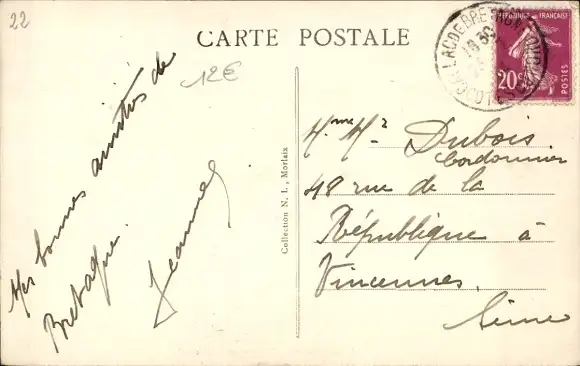 22
CARTE POSTALE
12€
RÉPUBLIQUE FRANÇAISE
20c
POSTES
Mes bonnes amitiés de
Bretagne.
Jeanne
Collection N. I., Morlaix
Mme Mr Dubois
Cordonnier
48 rue de la
République à
Vincennes.
Seine